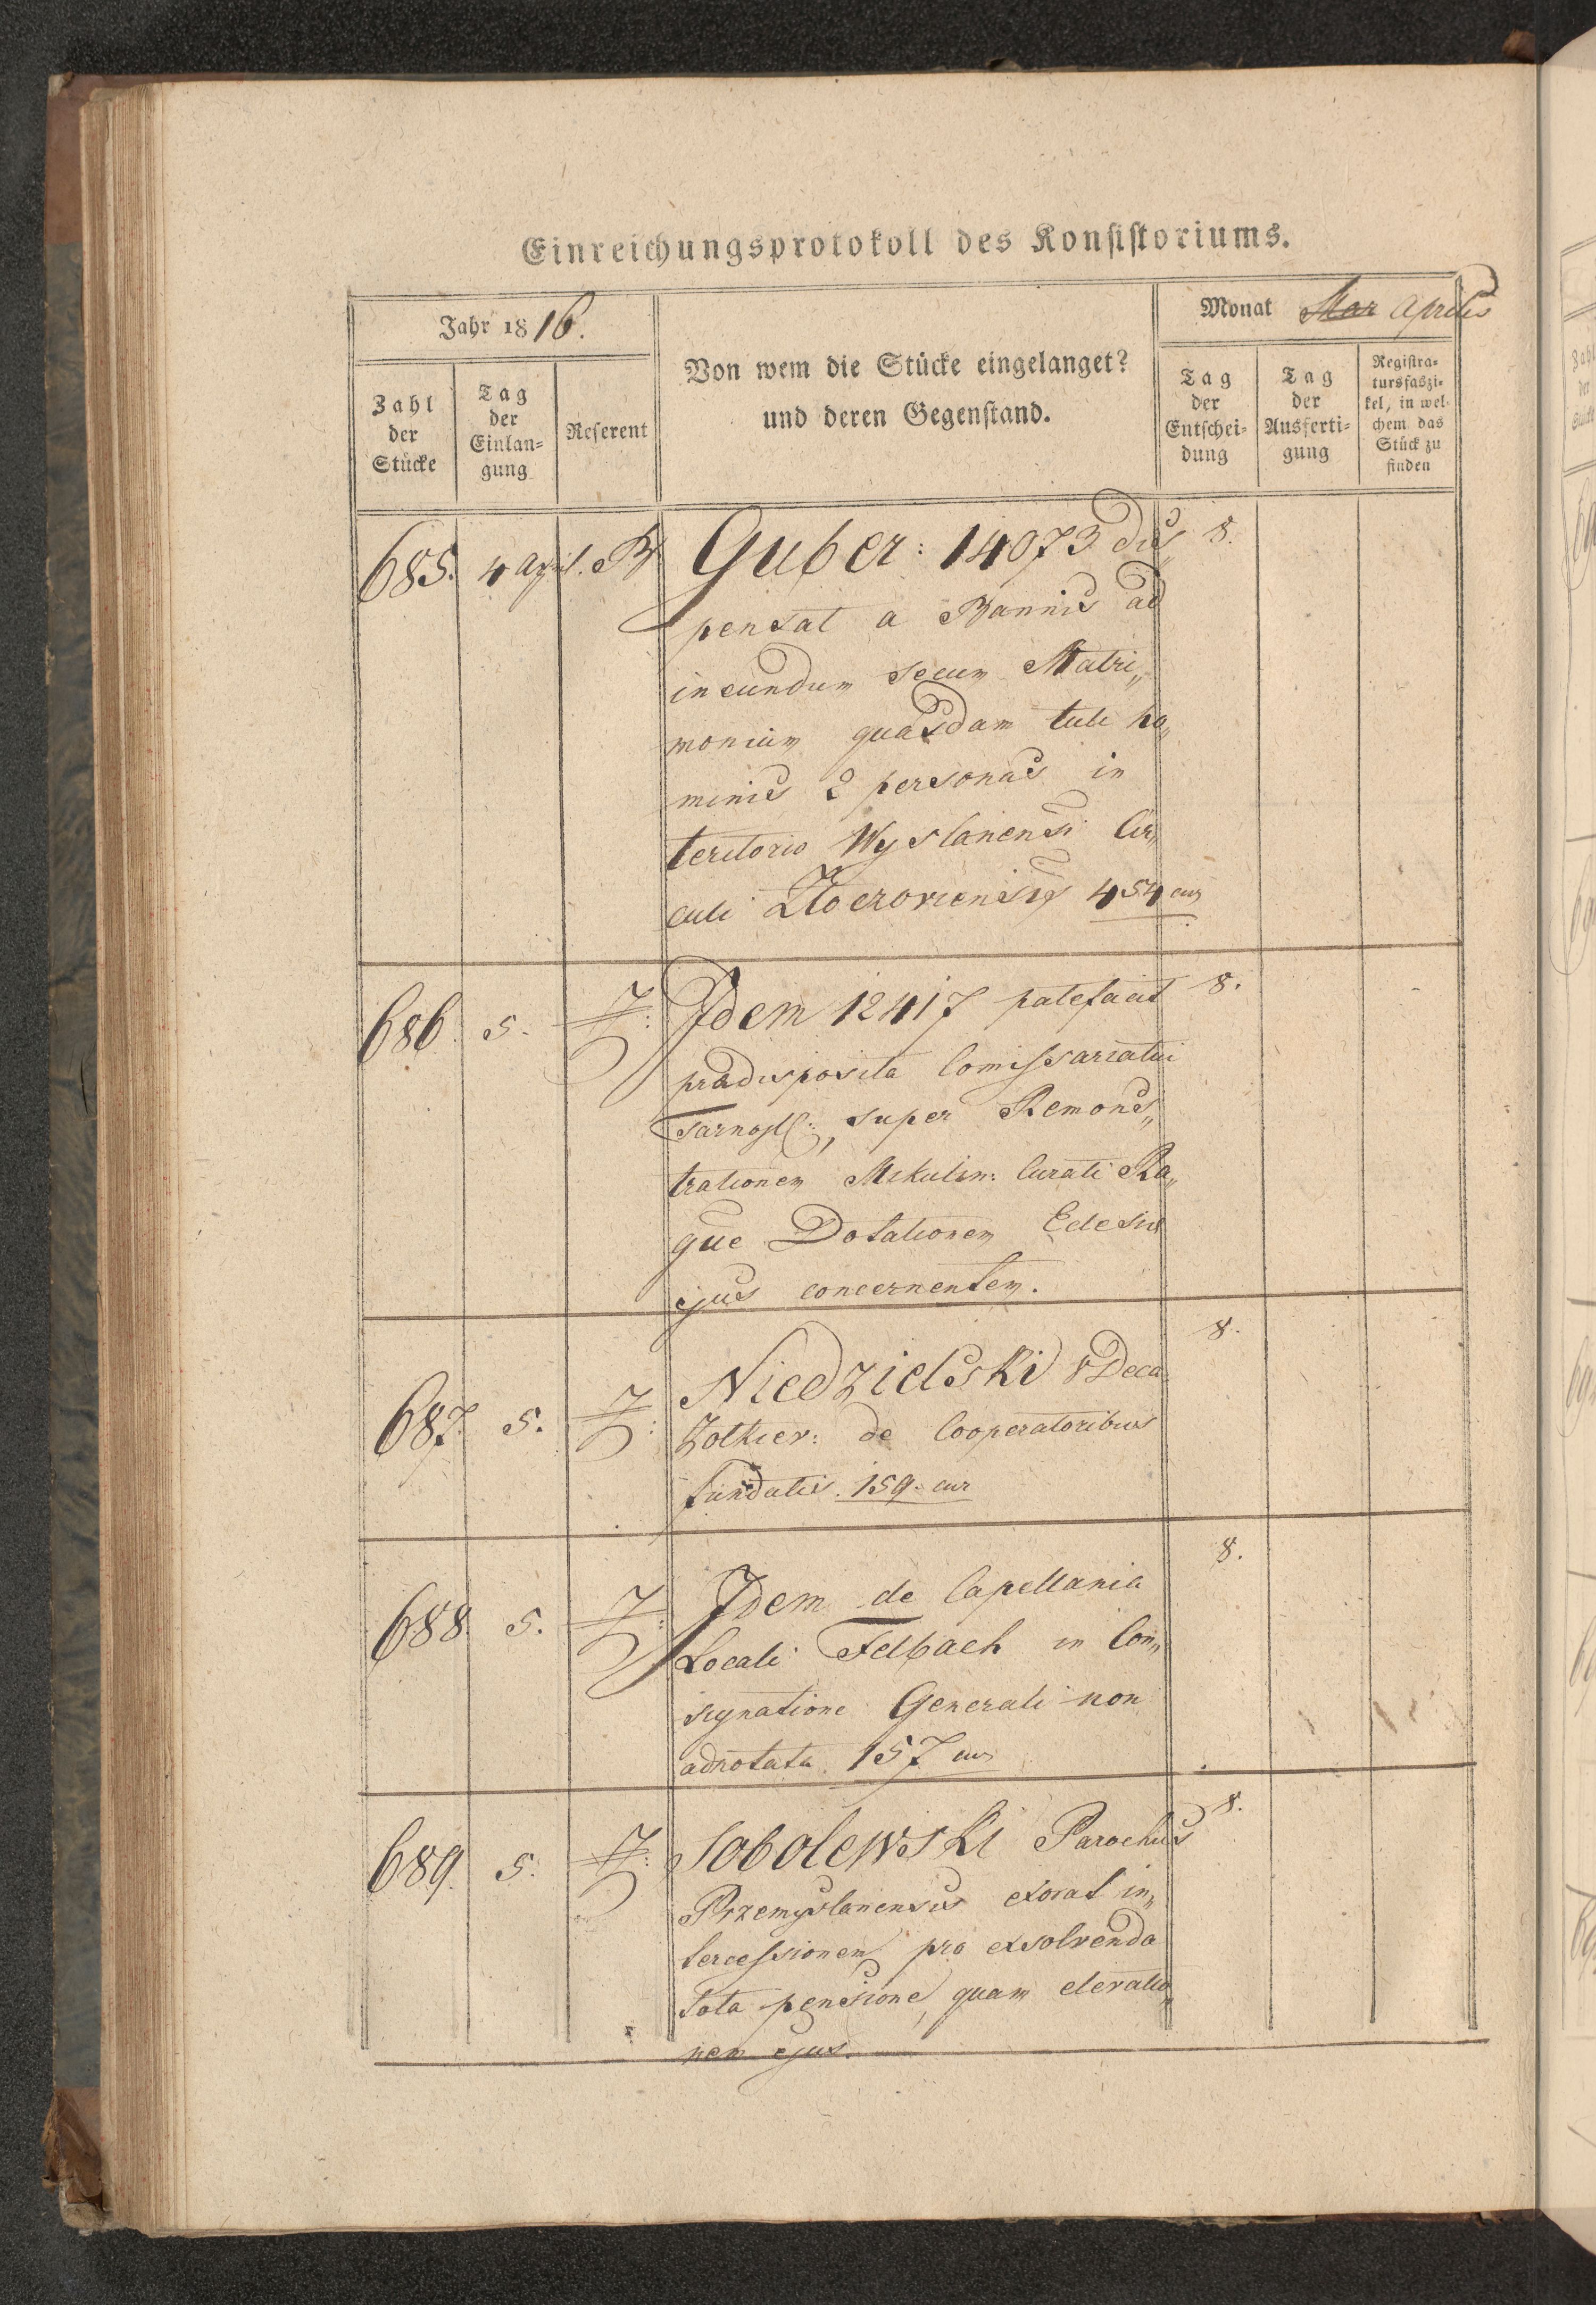 Einreichungsprotokoll des Konsistoriums.
Jahr 1816.
Monat Mar Aprilis
Zahl der Stücke
Tag der Einlan=gung
Referent
Von wem die Stücke eingelanget?
und deren Gegenstand.
Tag der Entschei=dung
Tag der Ausferti=gung
Registra=tursfaszi=kel, in wel=chem das Stück zu finden
685. 4 April. B Guber: 14073 dis„ 8.
pensat a Bannis ad
ineundum secum Matri„
monium quasdam tuli ho„
minis 2 personas in
teritorio Wyslanensi Cir„
culi Zloczoviensis 454 cur
686. 5. Z: Idem 12417 patefacit 8.
prædisposita Comissariatui
, super Remons„
trationem Mikulin: Curati Ra„
que Dotationem Ecclesiæ
ejus concernentem.
687. 5. Z: Niedzielski VDeca 8.
Zolkiev: de Cooperatoribus
fundatis. 159. cur
688. 5. Z: Idem de Capellania 8.
Locali Felbach in Con„
signatione Generali non
adnotata. 157 cur
689. 5. Z: Sobolewski Parochus 8.
Przemyslanensis exorat in„
tercessionem pro exsolvenda
tota pensione, quam elevatio„
nem ejus.